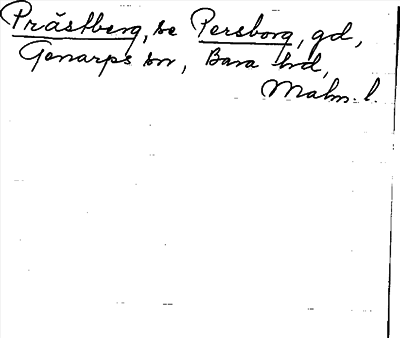 Prästberg, se Persborg, gd,
Genarps sn, Bara hd,
Malm. l.